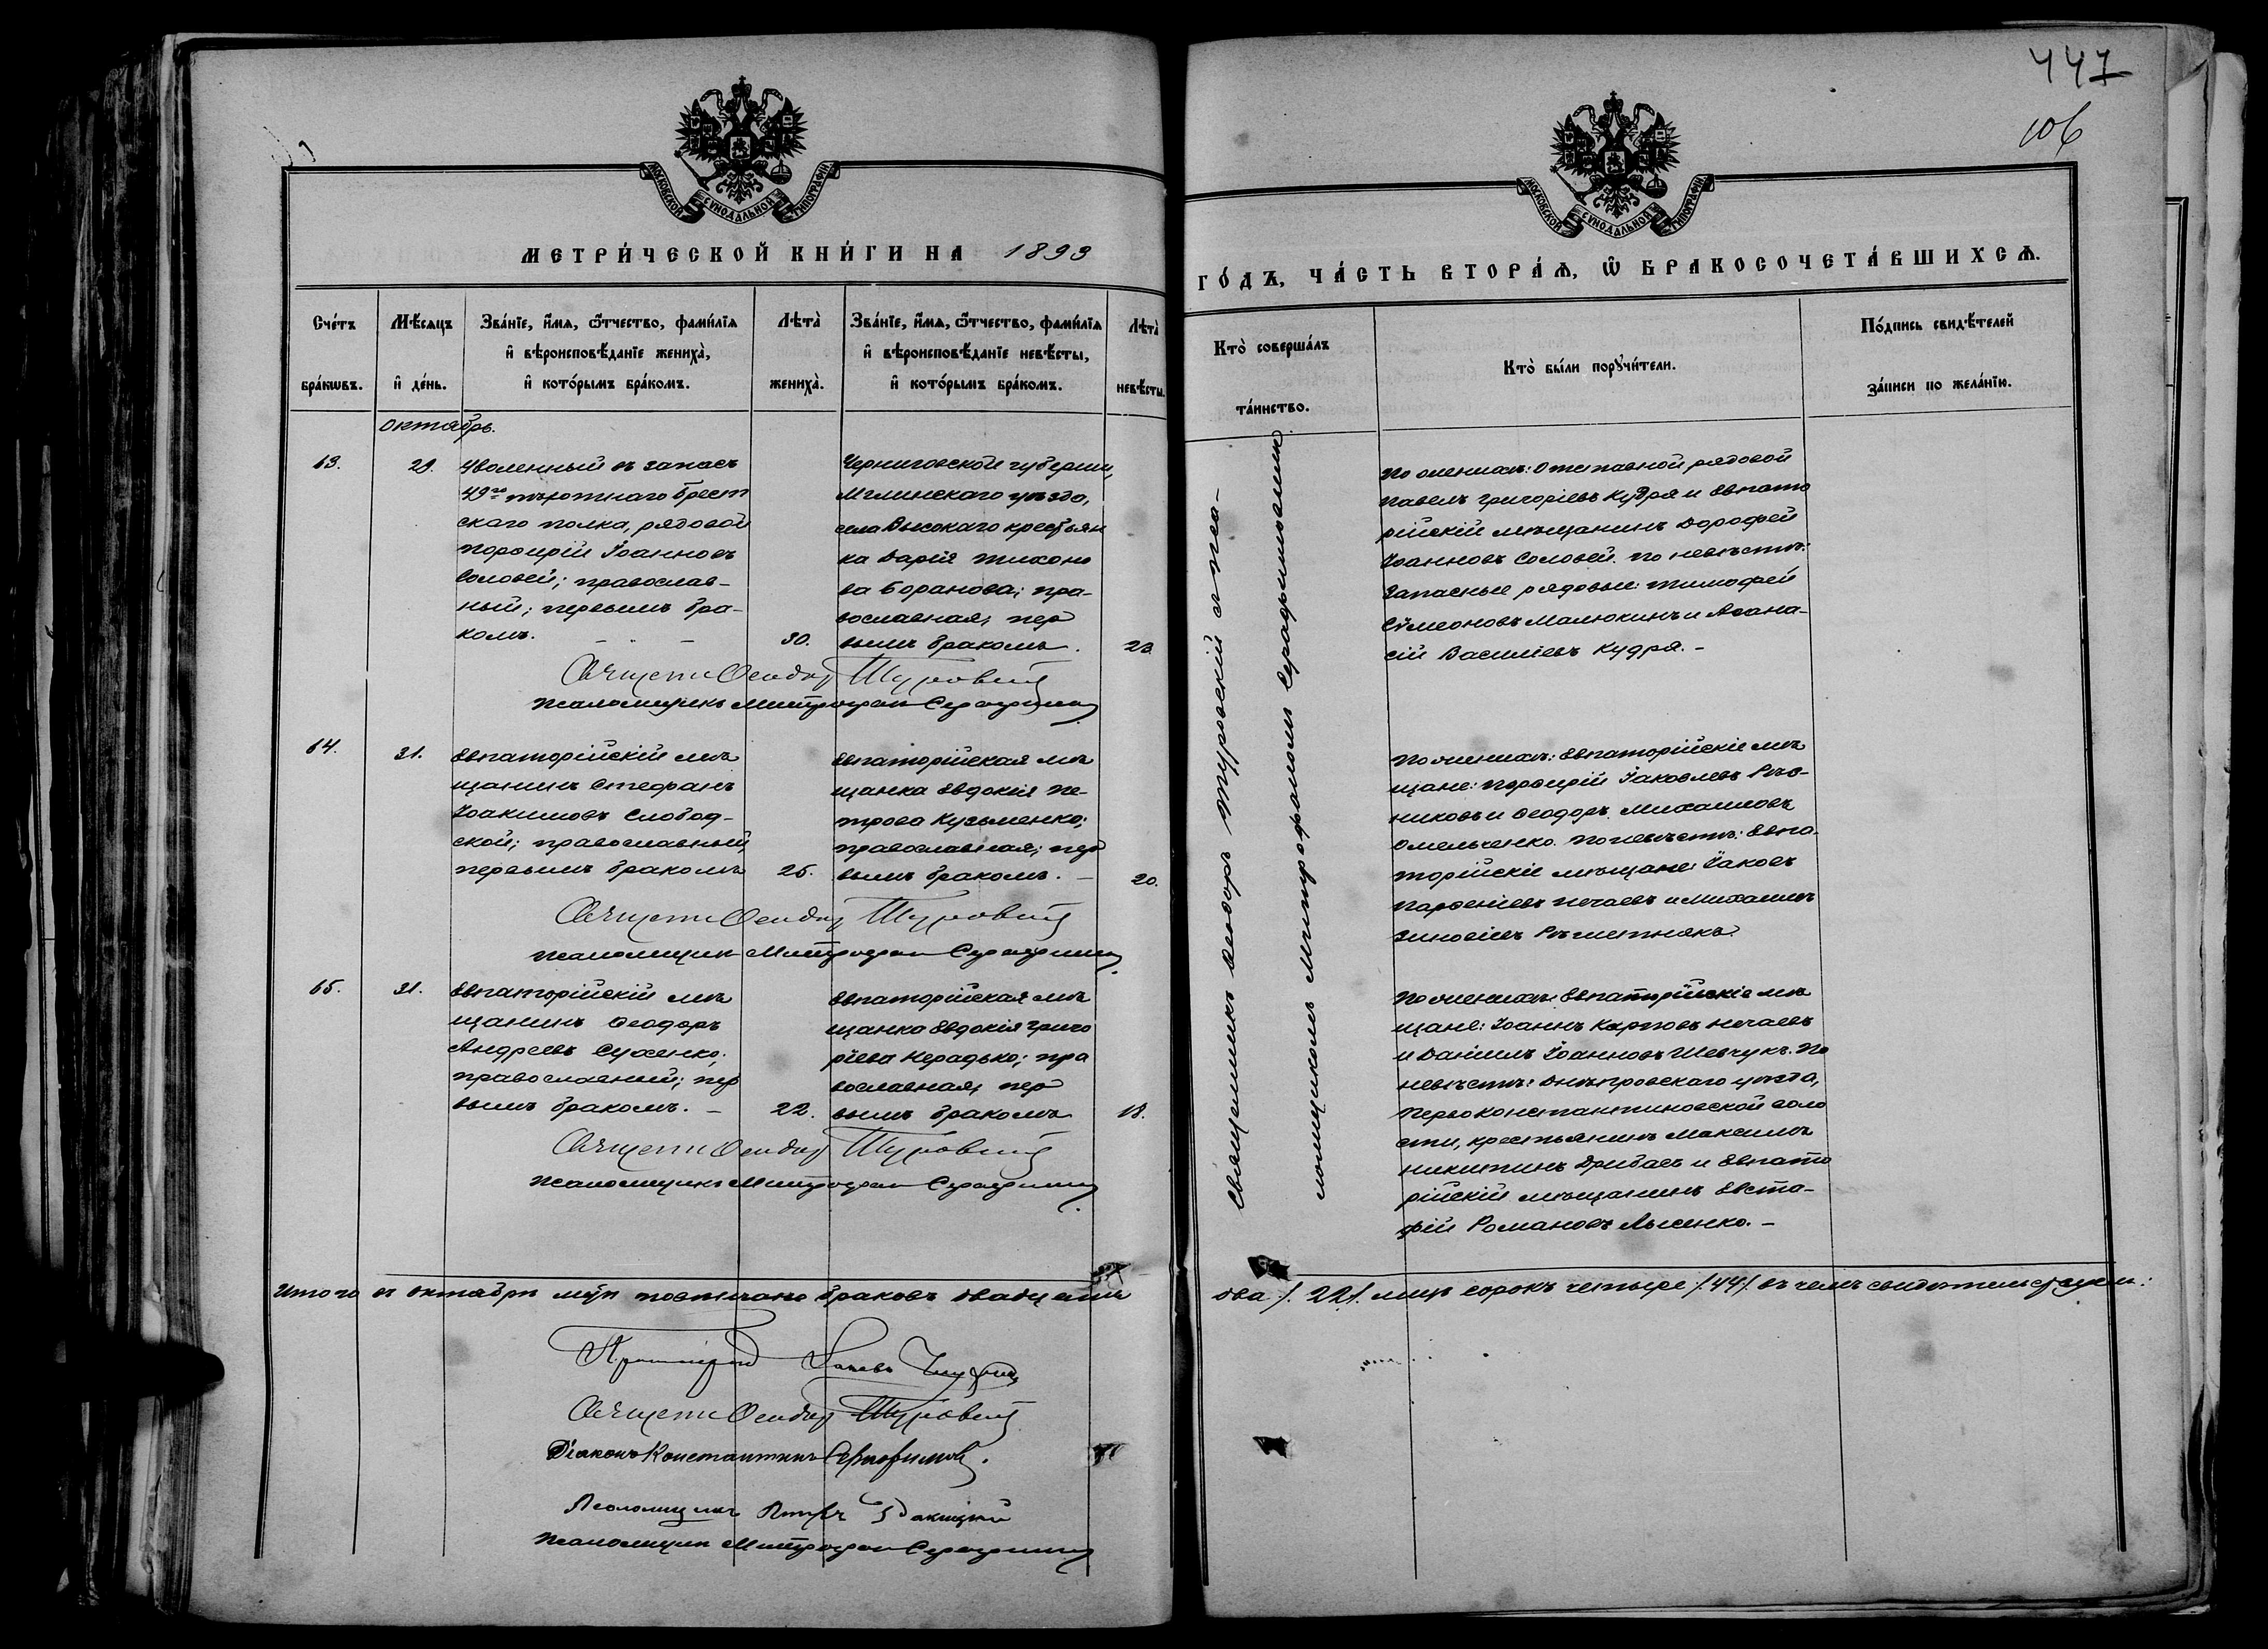 447
106
МОСКОВСКОЙ СѴНОДАЛЬНОЙ ТИПОГРАФІИ
МОСКОВСКОЙ СѴНОДАЛЬНОЙ ТИПОГРАФІИ
МЕТРИ́ЧЕСКОЙ КНИ́ГИ НА 1893
ГО́ДЪ, ЧА́СТЬ ВТОРА́Ѧ, Ѡ҆ БРАКОСОЧЕТА́ВШИХСѦ.
Сче́тъ бра́кѡвъ.
Мѣ́сѧцъ и҆ де́нь.
Зва́нїе, и҆́мѧ, ѻ҆́тчество, фами́лїѧ
и҆ вѣроисповѣ́данїе жениха̀,
и҆ кото́рымъ бра́комъ.
Лѣта̀ жениха̀.
Зва́нїе, и҆́мѧ, ѻ҆́тчество, фами́лїѧ
и҆ вѣроисповѣ́данїе невѣ́сты,
и҆ кото́рымъ бра́комъ.
Лѣта̀ невѣ́сты.
Кто̀ соверша́лъ та́инство.
Кто̀ бы́ли порꙋчи́тели.
По́дпись свидѣ́телей за́писи по жела́нїю.
октябрь.
63.
29.
Уволенный въ запасъ
49го пѣхотнаго Брест
скаго полка, рядовой
Порфирій Іоанновъ
Соловей; православ-
ный; первымъ бра-
комъ.
30.
Черниговской губерніи,
Мглинскаго уѣзда,
села Высокаго крестьян
ка Дарія Тихоно
ва Боранова; пра-
вославная; пер
вымъ бракомъ.
23.
По женихѣ: Отставной рядовой
Павелъ Григоріевъ Кудря и Евпато
рійскій мѣщанинъ Дорофей
Іоанновъ Соловей. по невѣстѣ:
Запасные рядовые: Тимофей
Сѵмеоновъ Малюкинъ и Афана-
сій Василіевъ Кудря. -
Священн Феодор Туровскій
Псаломщикъ Митрофан Серафимов
64.
31.
Евпаторійскій мѣ
щанинъ Стефанъ
Іоакимовъ Слобод-
ской; православный,
первымъ бракомъ
25.
Евпаторійская мѣ
щанка Евдокія Пе-
трова Кузьменко;
православная; пер
вымъ бракомъ. -
20.
По женихѣ: Евпаторійскіе мѣ
щане: Порфирій Іаковлевъ Рѣз-
никовъ и Феодоръ Михаиловъ
Омельченко. По невѣстѣ: Евпа-
торійскіе мѣщане: Іаковъ
Парфеніевъ Нечаевъ и Михаилъ
Зиновіевъ
Священн Феодор Туровскій
Псаломщик Митрофан Серафимов
65.
31.
Евпаторійскій мѣ
щанинъ Феодоръ
Андреевъ Сухенко;
православный; пер
вымъ бракомъ. -
22.
Евпаторійская мѣ
щанка Евдокія Григо
ріева Нерадько; пра
вославная; пер
вымъ бракомъ
18.
По женихѣ: Евпаторійскіе мѣ
щане: Іоаннъ Карповъ Нечаевъ
и Даніилъ Іоанновъ Шевчукъ. По
невѣстѣ: Днѣпровскаго уѣзда,
Первоконстантиновской воло
сти, крестьянинъ Максимъ
Никитинъ Дрибасъ и Евпато
рійскій мѣщанинъ Евста-
фій Романовъ Лысенко. -
Священн Феодор Туровскій
Псаломщикъ Митрофан Серафимов
Священникъ Феодоръ Туровскій с пса-
ломщикомъ Митрофаномъ Серафимовымъ
Итого въ октябрѣ м-цѣ повѣнчано браковъ двадцать
два /. 22 /. лицъ сорокъ четыре /. 44 /. въ чемъ свидѣтельствуемъ:
Протоіерей Іаковъ
Священн Феодор Туровскій
Діаконъ Константинъ Серафимовъ.
Псаломщикъ Петръ
Псаломщик Митрофан Серафимов